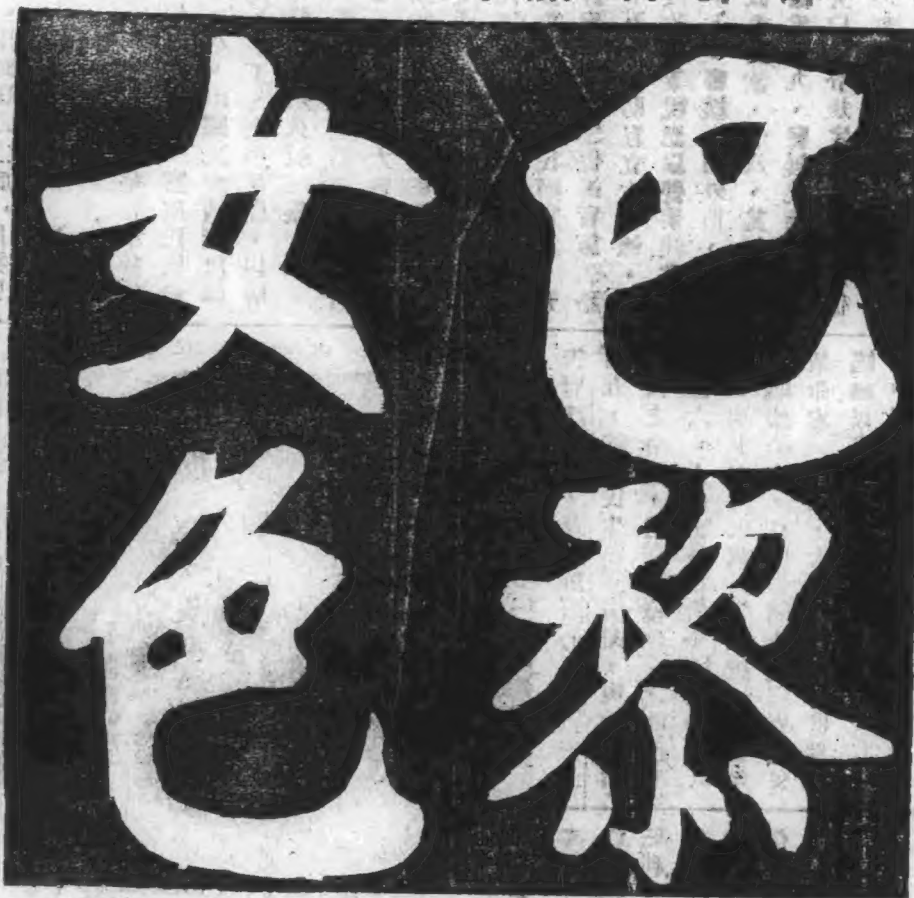 巴黎
女色